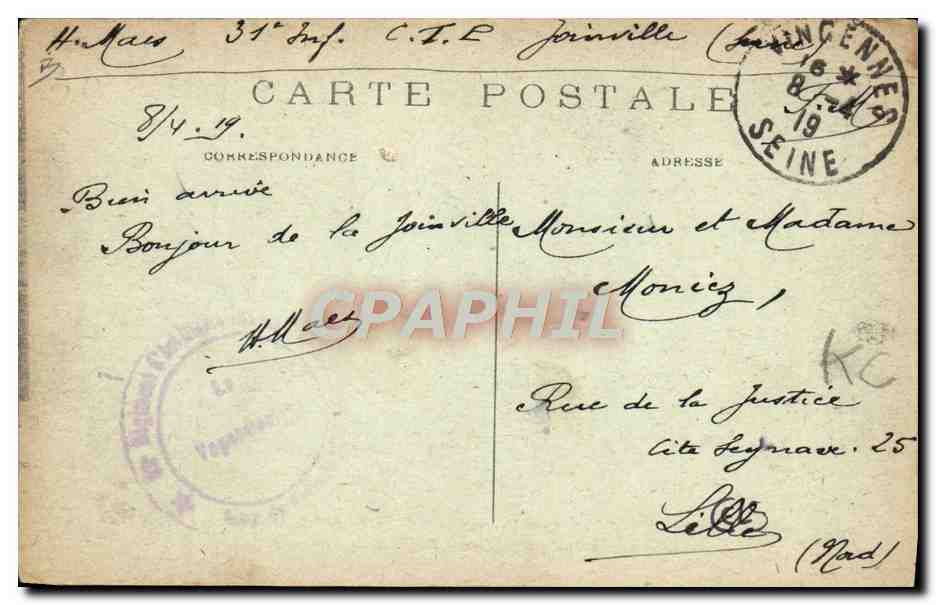 H. Maes 31e Inf. C.I.P Joinville (Seine)
VINCENNES
16 *
8 - 4
19
SEINE
F.M
CARTE POSTALE
8/4.19.
CORRESPONDANCE
ADRESSE
Bien arrivé
Bonjour de la Joinville
H. Maes
Monsieur et Madame
Moniez,
Rue de la Justice
Cité Seynave. 25
Lille
(Nord)
KC
CPAPHIL
Régiment
Le